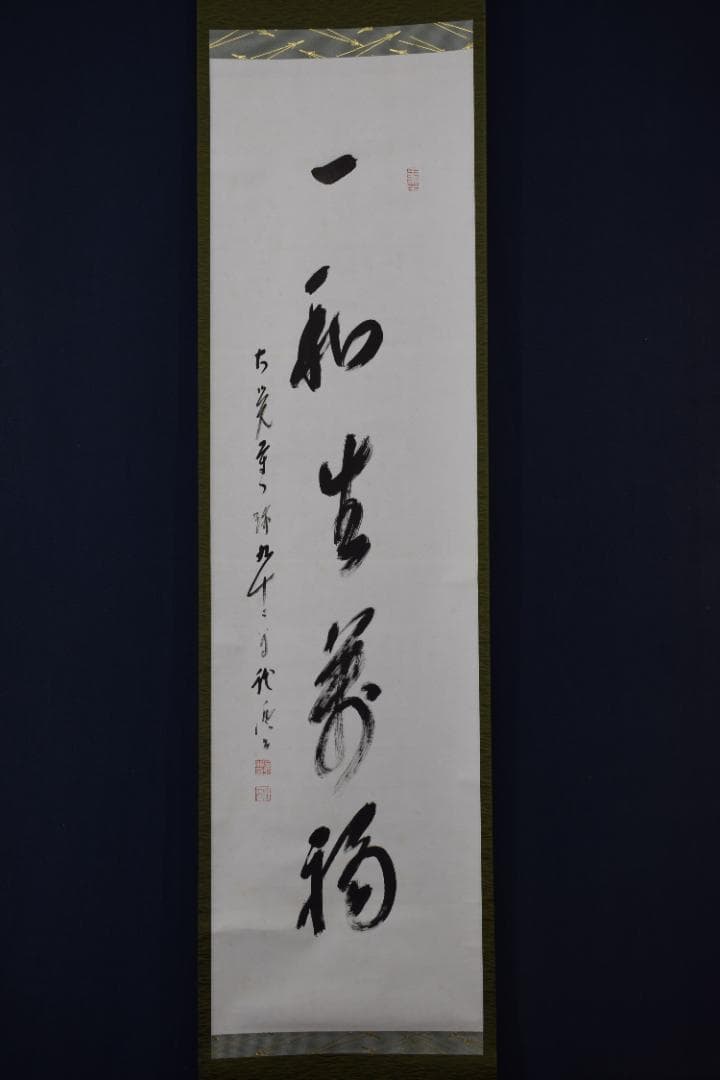 一和生萬福
大覚寺門跡九十二翁